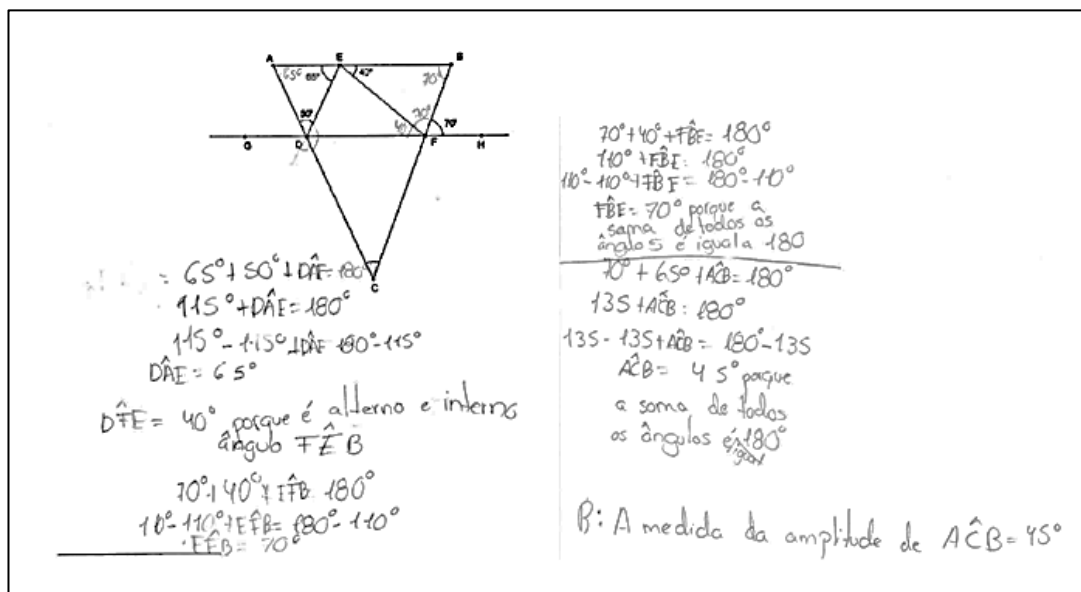 A E B
65° 65° 40° 70°
50° 70°
40 70°
G D F H
C
= 65° + 50° + DÂE = 180°
115° + DÂE = 180°
115° - 115° + DÂE = 180° - 115°
DÂE = 65°
DF̂E = 40° porque é alterno e interno
ângulo FÊB
70° + 40° + EF̂B = 180°
110° - 110° + EF̂B = 180° - 110°
EF̂B = 70°
70° + 40° + FB̂E = 180°
110° + FB̂E = 180°
110° - 110° + FB̂E = 180° - 110°
FB̂E = 70° porque a
soma de todos os
ângulos é igual a 180
70° + 65° + AĈB = 180°
135 + AĈB = 180°
135 - 135 + AĈB = 180° - 135
AĈB = 45° porque
a soma de todos
os ângulos é igual 180°
R: A medida da amplitude de AĈB = 45°